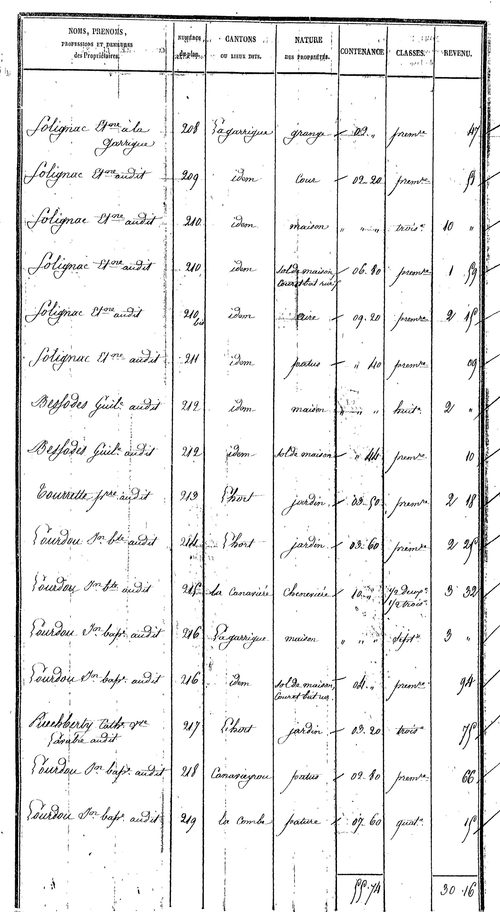 NOMS, PRENOMS, PROFESSIONS ET DEMEURES des Propriétaires. NUMÉROS du plan. CANTONS OU LIEUX DITS. NATURE DES PROPRIÉTÉS. CONTENANCE. CLASSES. REVENU.
Solignac Etne à la garrigue 208 Lagarrigue grange 02 „ premre 47
Solignac Etne audit 209 idem Cour 02 20 premre 51
Solignac Etne audit 210 idem maison „ „ „ trois.e 10 „
Solignac Etne audit 210 idem sol de maison, Cour et bat rur. 06 80 premre 1 59
Solignac Etne audit 210 bis idem aire 09 20 premre 2 15
Solignac Etne audit 211 idem patus „ 40 premre 09
Bessodes Guil.e audit 212 idem maison „ „ „ huit.e 2 „
Bessodes Guil.e audit 212 idem sol de maison „ 44 premre 10
Tourrette prre audit 213 L'hort jardin 03 50 premre 2 18
Lourdou Jn bte audit 214 L'hort jardin 03 60 premre 2 25
Lourdou Jn bte audit 215 La Canaviére Cheneviére 10 „ 1/2 deuxe 1/2 trois. 3 32
Lourdou Jn bapt. audit 216 Lagarrigue maison „ „ „ septe 3 „
Lourdou Jn bapt. audit 216 idem sol de maison, Cour et bat rur 04 „ premre 94
audit 217 L'hort jardin 03 20 troise 75
Lourdou Jn bapt. audit 218 Canavayrou patus 02 80 premre 66
Lourdou Jn bapt. audit 219 la Combe pature 07 60 quat.e 15
55 74 30 16